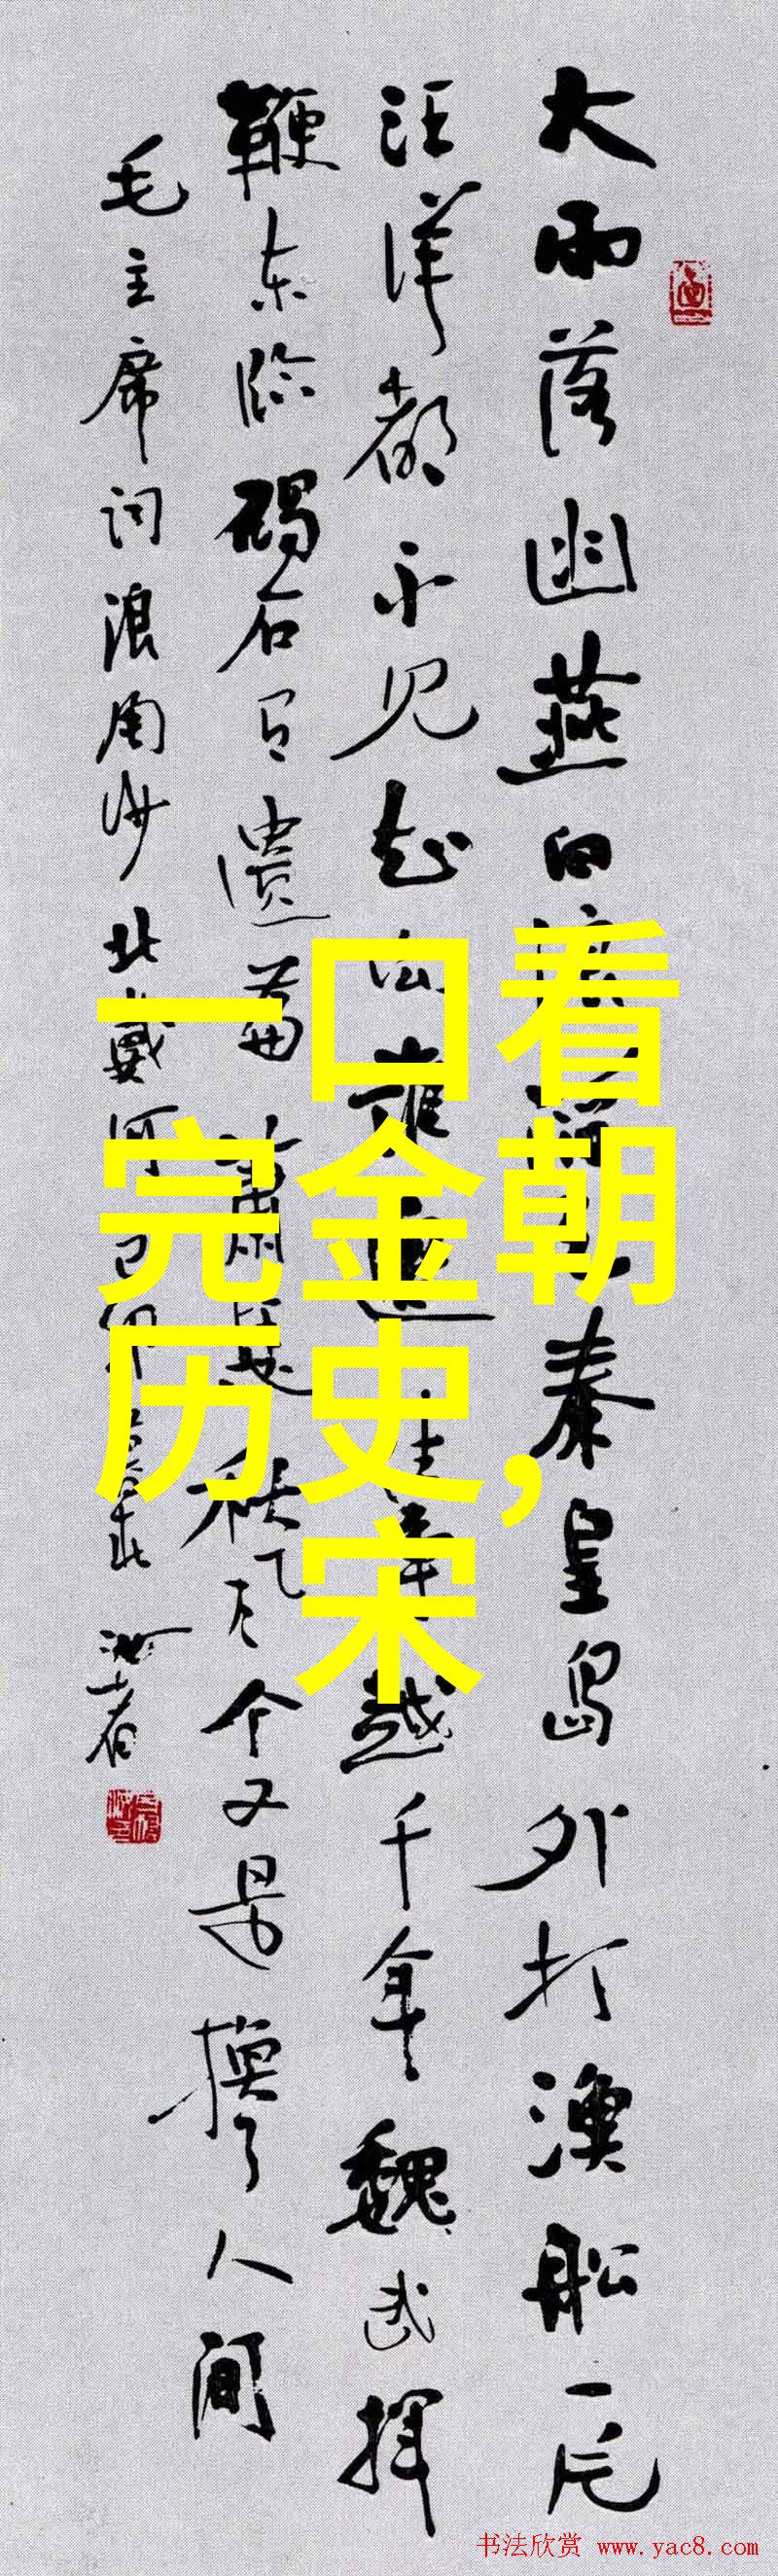 大雨落幽燕白浪滔天秦皇岛外打渔船一片
汪洋都不见知向谁边往事越千年魏武挥
鞭东临碣石有遗篇萧瑟秋风今又是换了人间
毛主席词浪淘沙北戴河己卯
一口看
完金朝
历史,
宋
书法欣赏 www.yac8.com